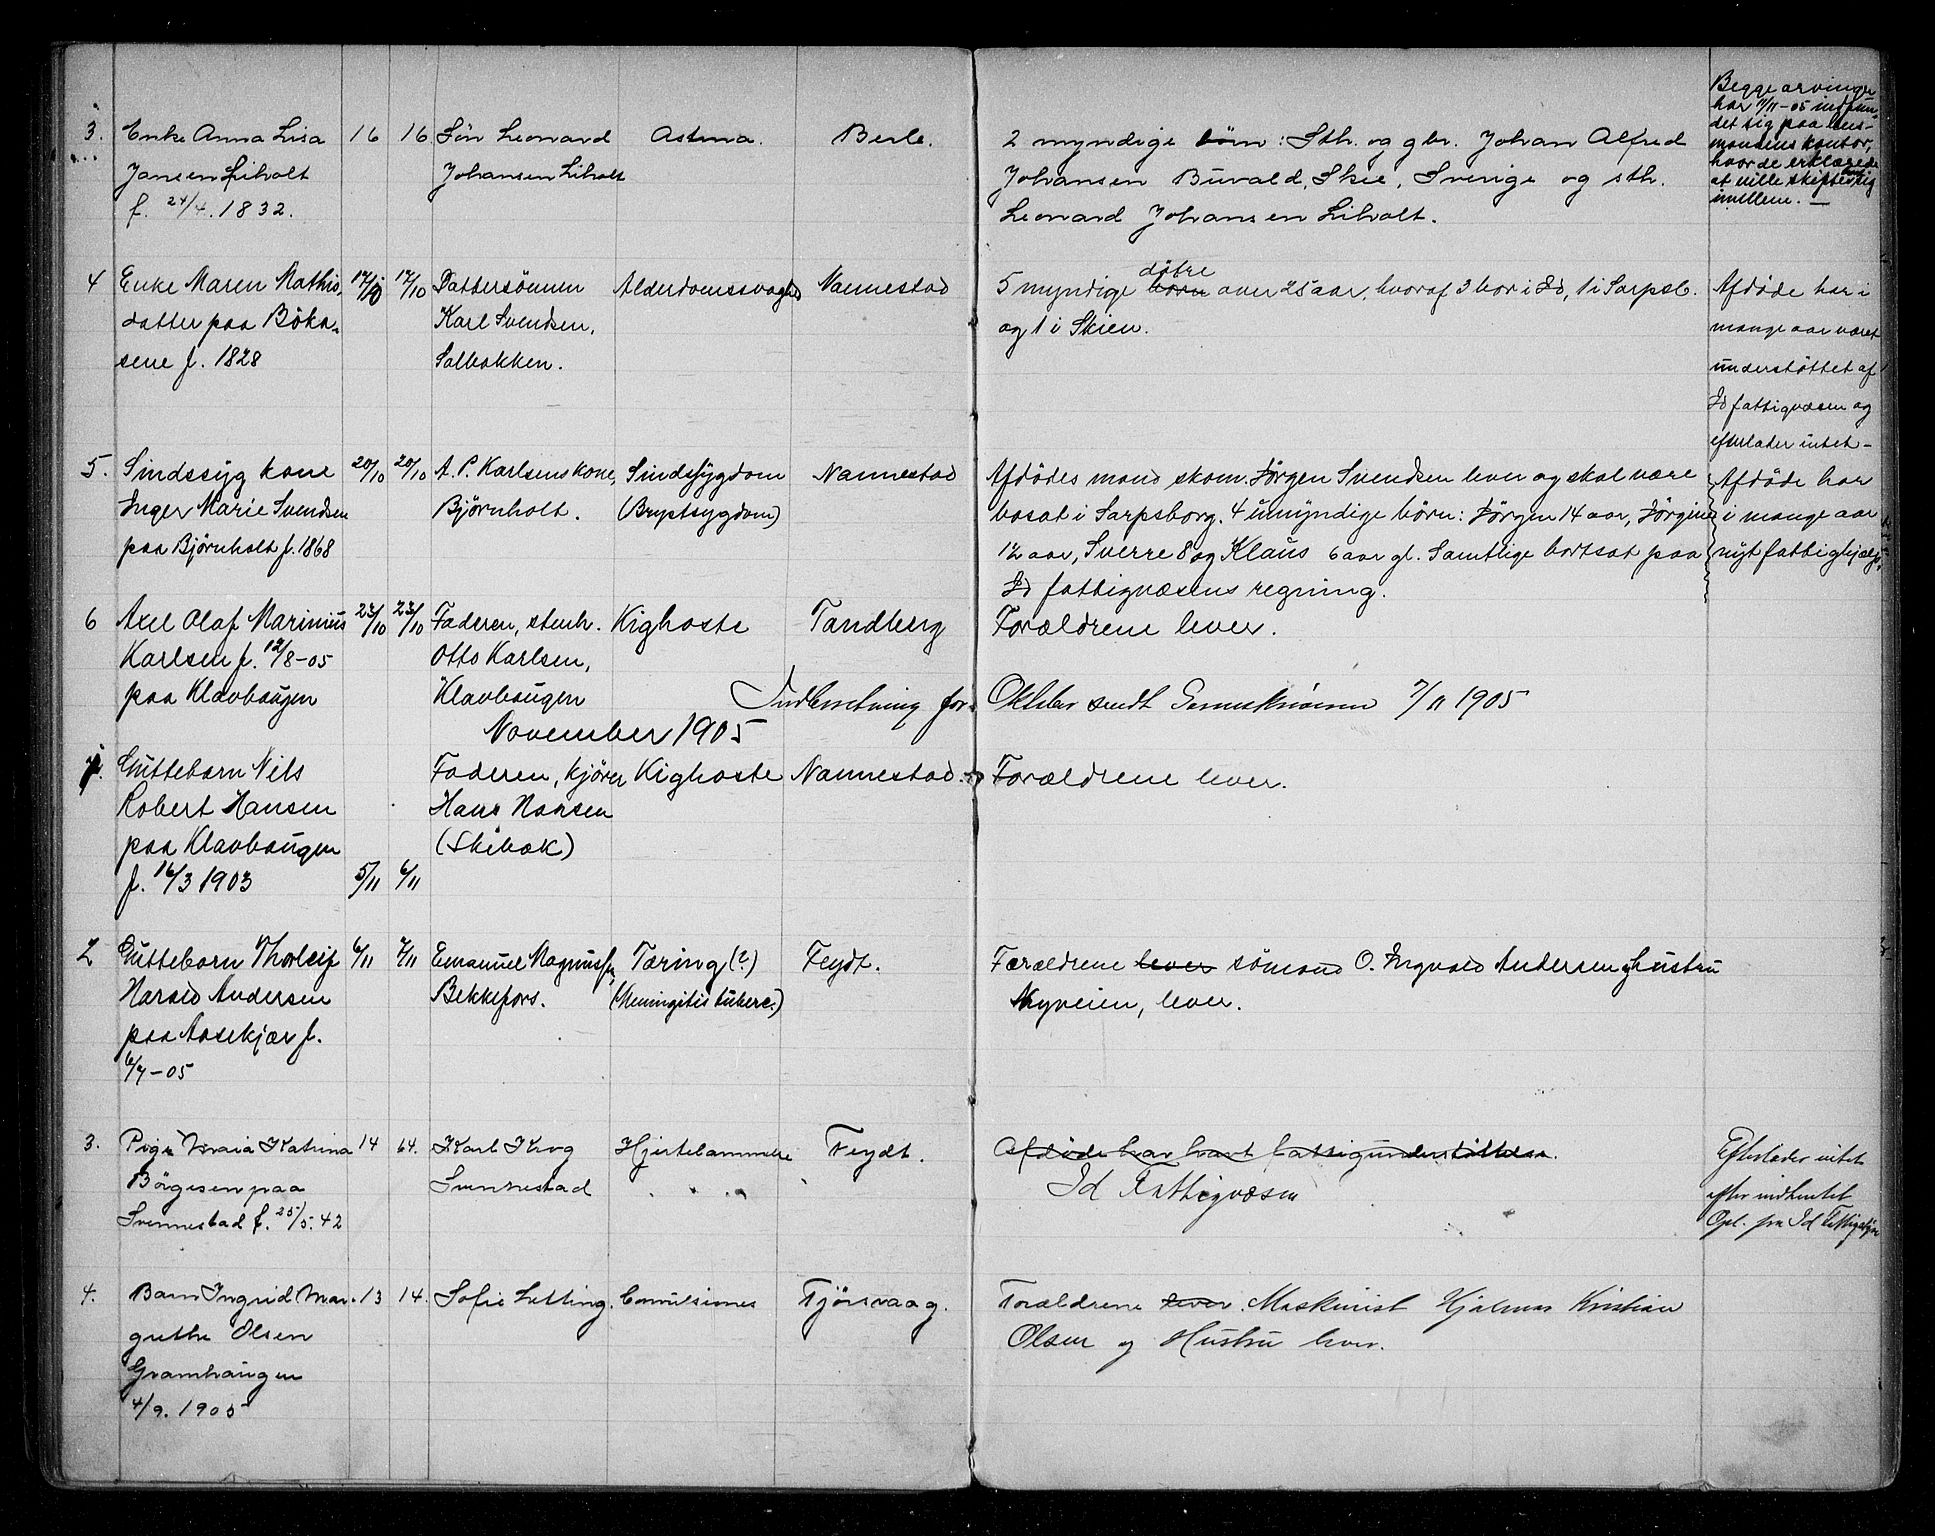 3. Enke Anna Lisa 16 16 Sön Leonard Astma. Berle. 2 myndige börn: Sth. og gbr. Johan Alfred
Jansen Liholt Johansen Liholt Johansen Buvald, Skee, Sverige og sth.
f. 24/4. 1832. Leonard Johansen Liholt.
Begge arvinger
har 7/11-05 indfun-
det sig paa lens-
mandens kontor,
hvor de erklærede
at ville skifte sig
imellem. —
4 Enke Maren Mathis- 17/10 17/10 Dattersönnen Alderdomssvaghed Nannestad 5 myndige börn döbre over 25 aar, hvoraf 3 bor i Id, 1 i Sarpsb.
datter paa Böka- Karl Svendsen, og 1 i Skien.
sene f. 1828 Solbakken.
Afdöde har i
mange aar været
understöttet af
Id fattigvæsen og
efterlader intet-
5. Sindssyg kone 20/10 20/10 A. P. Karlsens kone, Sindssygdom Nannestad Afdödes mand skom. Jörgen Svendsen lever og skal være
Inger Marie Svendsen Björnholt. (Brystsygdom) bosat i Sarpsborg. 4 umyndige börn: Jörgen 14 aar, Jörgine
paa Björnholt f. 1868 12 aar, Sverre 8 og Klaus 6 aar gl. Samtlige bortsat paa
Id fattigvæsens regning.
Afdöde har
i mange aar
nydt fattighjælp.
6 Axel Olaf Marinius 23/10 23/10 Faderen, stenh. Kighoste Tandberg Forældrene lever.
Karlsen f. 12/8-05 Otto Karlsen,
paa Klavhaugen Klavhaugen
Indberetning for Oktober sendt 7/11 1905
November 1905
1. Guttebarn Nils Faderen, kjörer Kighoste Nannestad. Forældrene lever.
Robert Hansen Hans Hansen
paa Klavhaugen (Skibæk)
f. 16/3 1903 5/11 6/11
2 Guttebarn Thorleif 6/11 7/11 Emanuel Magnussen, Tæring (?) Feydt. Forældrene lever sömand O. Ingvald Andersen og hustru
Harald Andersen Bekkefors. (Meningitis tuberc.) Myveien, lever.
paa Aasekjær f.
6/7-05
3. Pige Maia Katrina 14 64. Karl Krog Hjertelammelse Feydt. Afdöde har havt fattigunderstöttelse.
Börgesen paa Svennestad Id Fattigvæsen
Svennestad f. 25/5. 42
Efterlader intet
efter indhentet
Opl. fra Id Fattigstyre
4. Barn Ingrid Mar- 13 14. Sofie Letting. Convulsiones Tjörsvaag. Forældrene lever. Maskinist Hjalmar Kristian
grethe Olsen Olsen og Hustru lever.
Gramhaugen
4/9. 1905